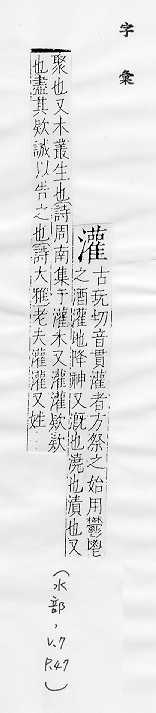 字彙
灌
古玩切音貫灌者方祭之始用鬱鬯
之酒灌地降神又漑也澆也漬也又
聚也又木叢生也詩周南集于灌木又灌灌欵欵
也盡其欵誠以告之也詩大雅老夫灌灌又姓
(水部，V.7 P.47)